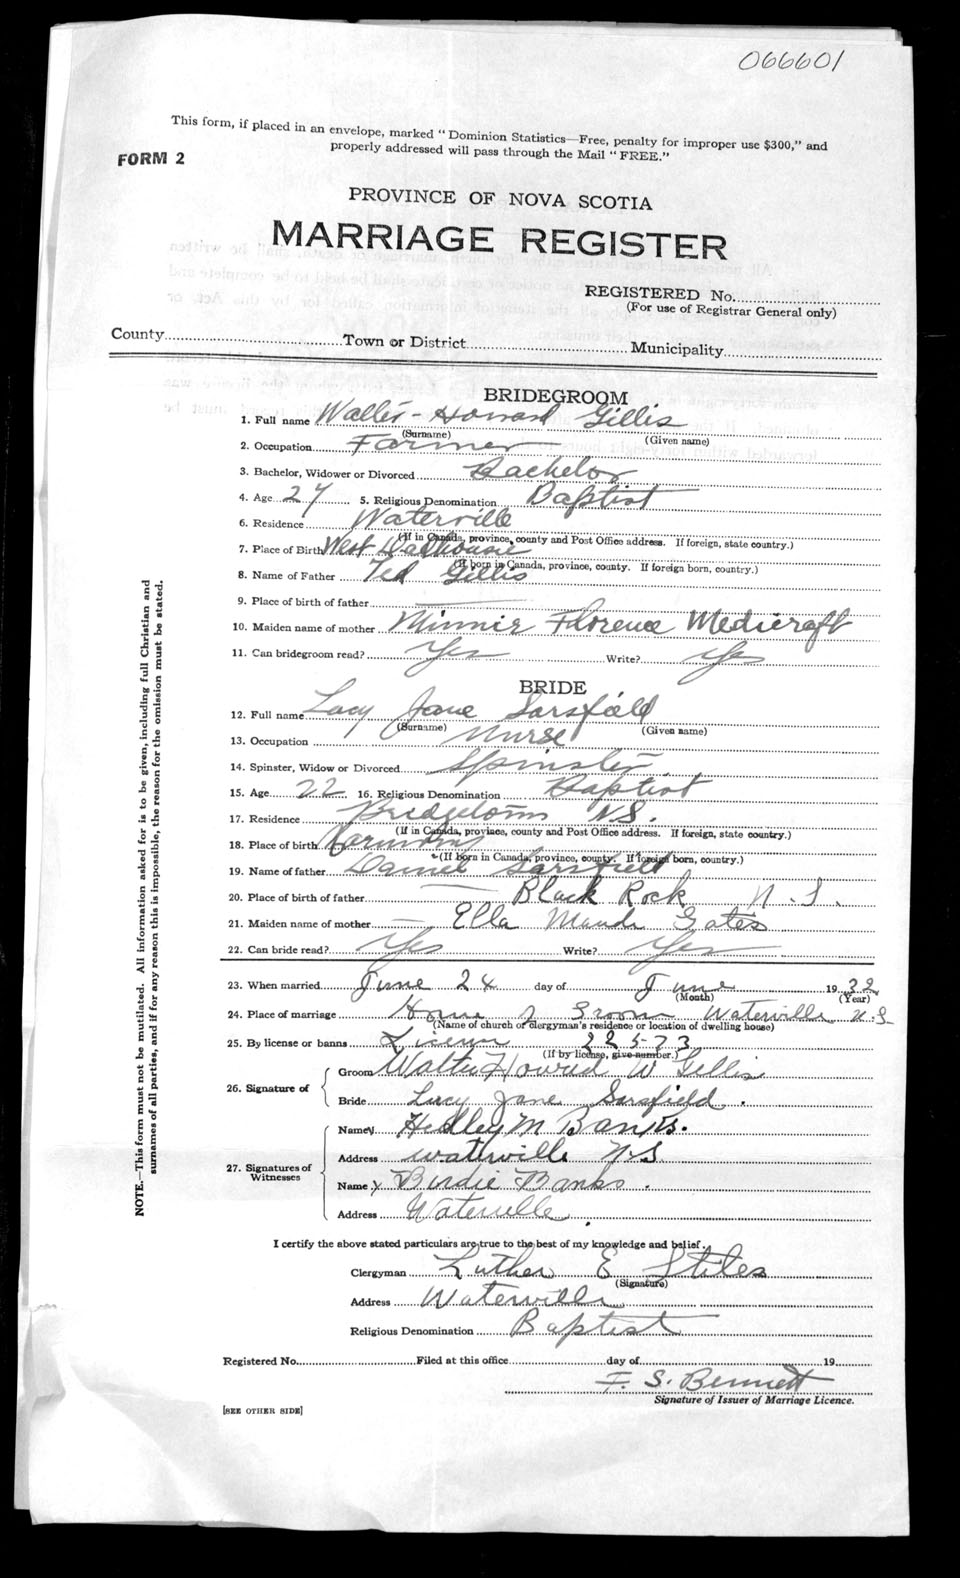 066601
This form, if placed in an envelope, marked "Dominion Statistics—Free, penalty for improper use $300," and
properly addressed will pass through the Mail "FREE."
FORM 2
PROVINCE OF NOVA SCOTIA
MARRIAGE REGISTER
REGISTERED No.
(For use of Registrar General only)
County Town or District Municipality
BRIDEGROOM
1. Full name Walter - Howard Gillis
(Surname) (Given name)
2. Occupation Farmer
3. Bachelor, Widower or Divorced Bachelor
4. Age 27 5. Religious Denomination Baptist
6. Residence Waterville
(If in Canada, province, county and Post Office address. If foreign, state country.)
7. Place of Birth West Dalhousie
(If born in Canada, province, county. If foreign born, country.)
8. Name of Father Ted Gillis
9. Place of birth of father
10. Maiden name of mother Minnie Florence Medicraft
11. Can bridegroom read? Yes Write? Yes
BRIDE
12. Full name Lucy Jane Sarsfield
(Surname) (Given name)
13. Occupation Nurse
14. Spinster, Widow or Divorced Spinster
15. Age 22 16. Religious Denomination Baptist
17. Residence Bridgetown N.S.
(If in Canada, province, county and Post Office address. If foreign, state country.)
18. Place of birth
(If born in Canada, province, county. If foreign born, country.)
19. Name of father Daniel Sarsfield
20. Place of birth of father — Black Rock N.S.
21. Maiden name of mother — Ella Maude Gates
22. Can bride read? Yes Write? Yes
23. When married June 24 day of June 1932
(Month) (Year)
24. Place of marriage Home of Groom Waterville N.S.
(Name of church or clergyman's residence or location of dwelling house)
25. By license or banns License 22573
(If by license, give number.)
26. Signature of
Groom Walter Howard W Gillis
Bride Lucy Jane Sarsfield.
27. Signatures of
Witnesses
Name Hedley M Banks.
Address Waterville N.S
Name x Burdie Banks.
Address Waterville.
I certify the above stated particulars are true to the best of my knowledge and belief.
Clergyman Luther E Stiles
(Signature)
Address Waterville
Religious Denomination Baptist
Registered No. Filed at this office day of 19
F. S. Bennett
Signature of Issuer of Marriage Licence.
[SEE OTHER SIDE]
NOTE.—This form must not be mutilated. All information asked for is to be given, including full Christian and
surnames of all parties, and if for any reason this is impossible, the reason for the omission must be stated.